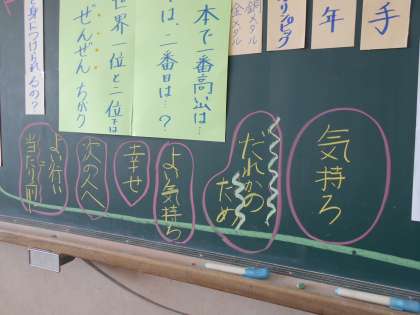 手
年
リンピック
銅メタル
金メタル
本で一番高い山は…
は、二番目は…?
世界一位と二位では
ぜんぜんちがう
と身につけられるの?
気持ち
だれかの
ため
よい気持ち
幸せ
次の人へ
よい行い
当たり前